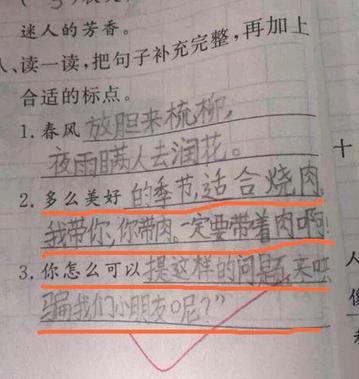 迷人的芳香。
、读一读，把句子补充完整，再加上
合适的标点。
1. 春风放胆来梳柳，
夜雨瞒人去润花。
十
2. 多么美好的季节，适合烧肉，
我带你，你带肉。一定要带着肉啊
3. 你怎么可以提这样的问题，来
骗我们小朋友呢？”